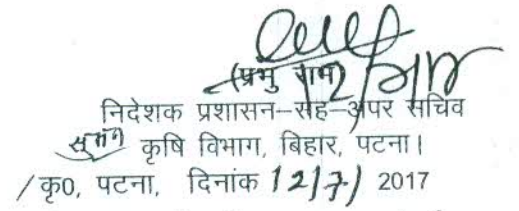 (प्रभु राम)
निदेशक प्रशासन–सह–अपर सचिव
कृषि विभाग, बिहार, पटना।
/कृ0, पटना, दिनांक 12/7/ 2017